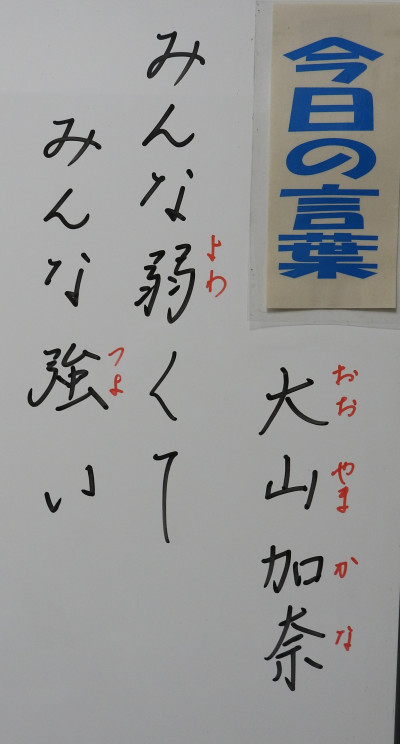 今日の言葉
大山加奈
おおやまかな
みんな弱くて
よわ
みんな強い
つよ